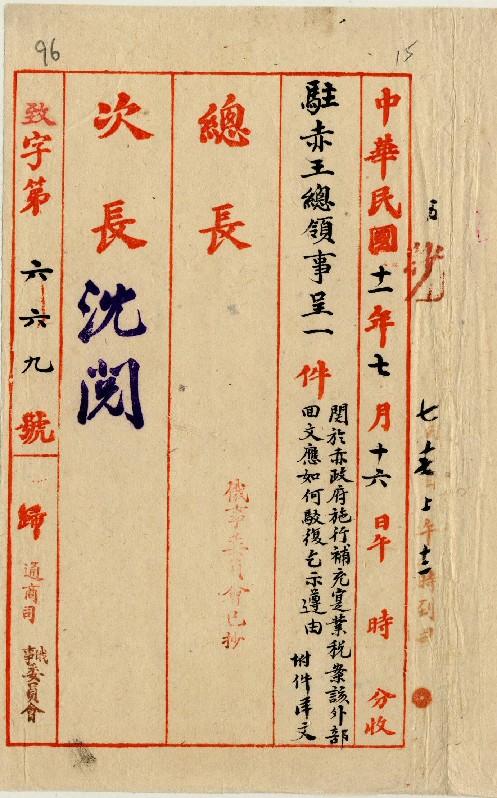 96
15
中華民國十一年七月十六日午 時 分收
駐赤王總領事呈一件
関於赤政府施行補充寔業税案該外部
回文應如何駁復乞示遵由 附件洋文
總長
俄事委員會已抄
次長 沈閱
致字第六六九號
歸 通商司
俄事委員會